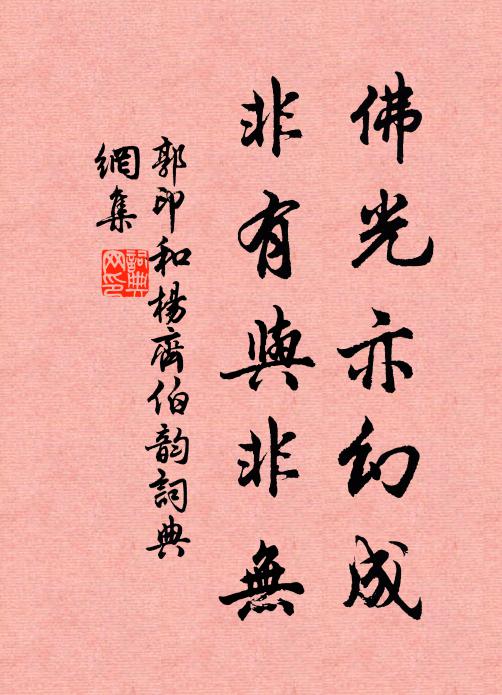 佛光亦幻成
非有與非無
郭印和楊齊伯韵詞典
網集
詞典
网印